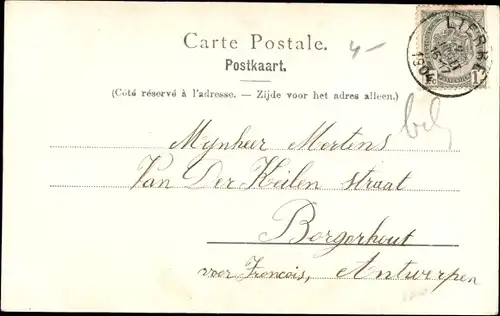 Carte Postale.
4-
Postkaart.
(Côté réservé à l'adresse. — Zijde voor het adres alleen.)
LIERRE
1904
Mynheer Mertens
Van Der Keilen straat
Borgerhout
voor Francois, Antwerpen